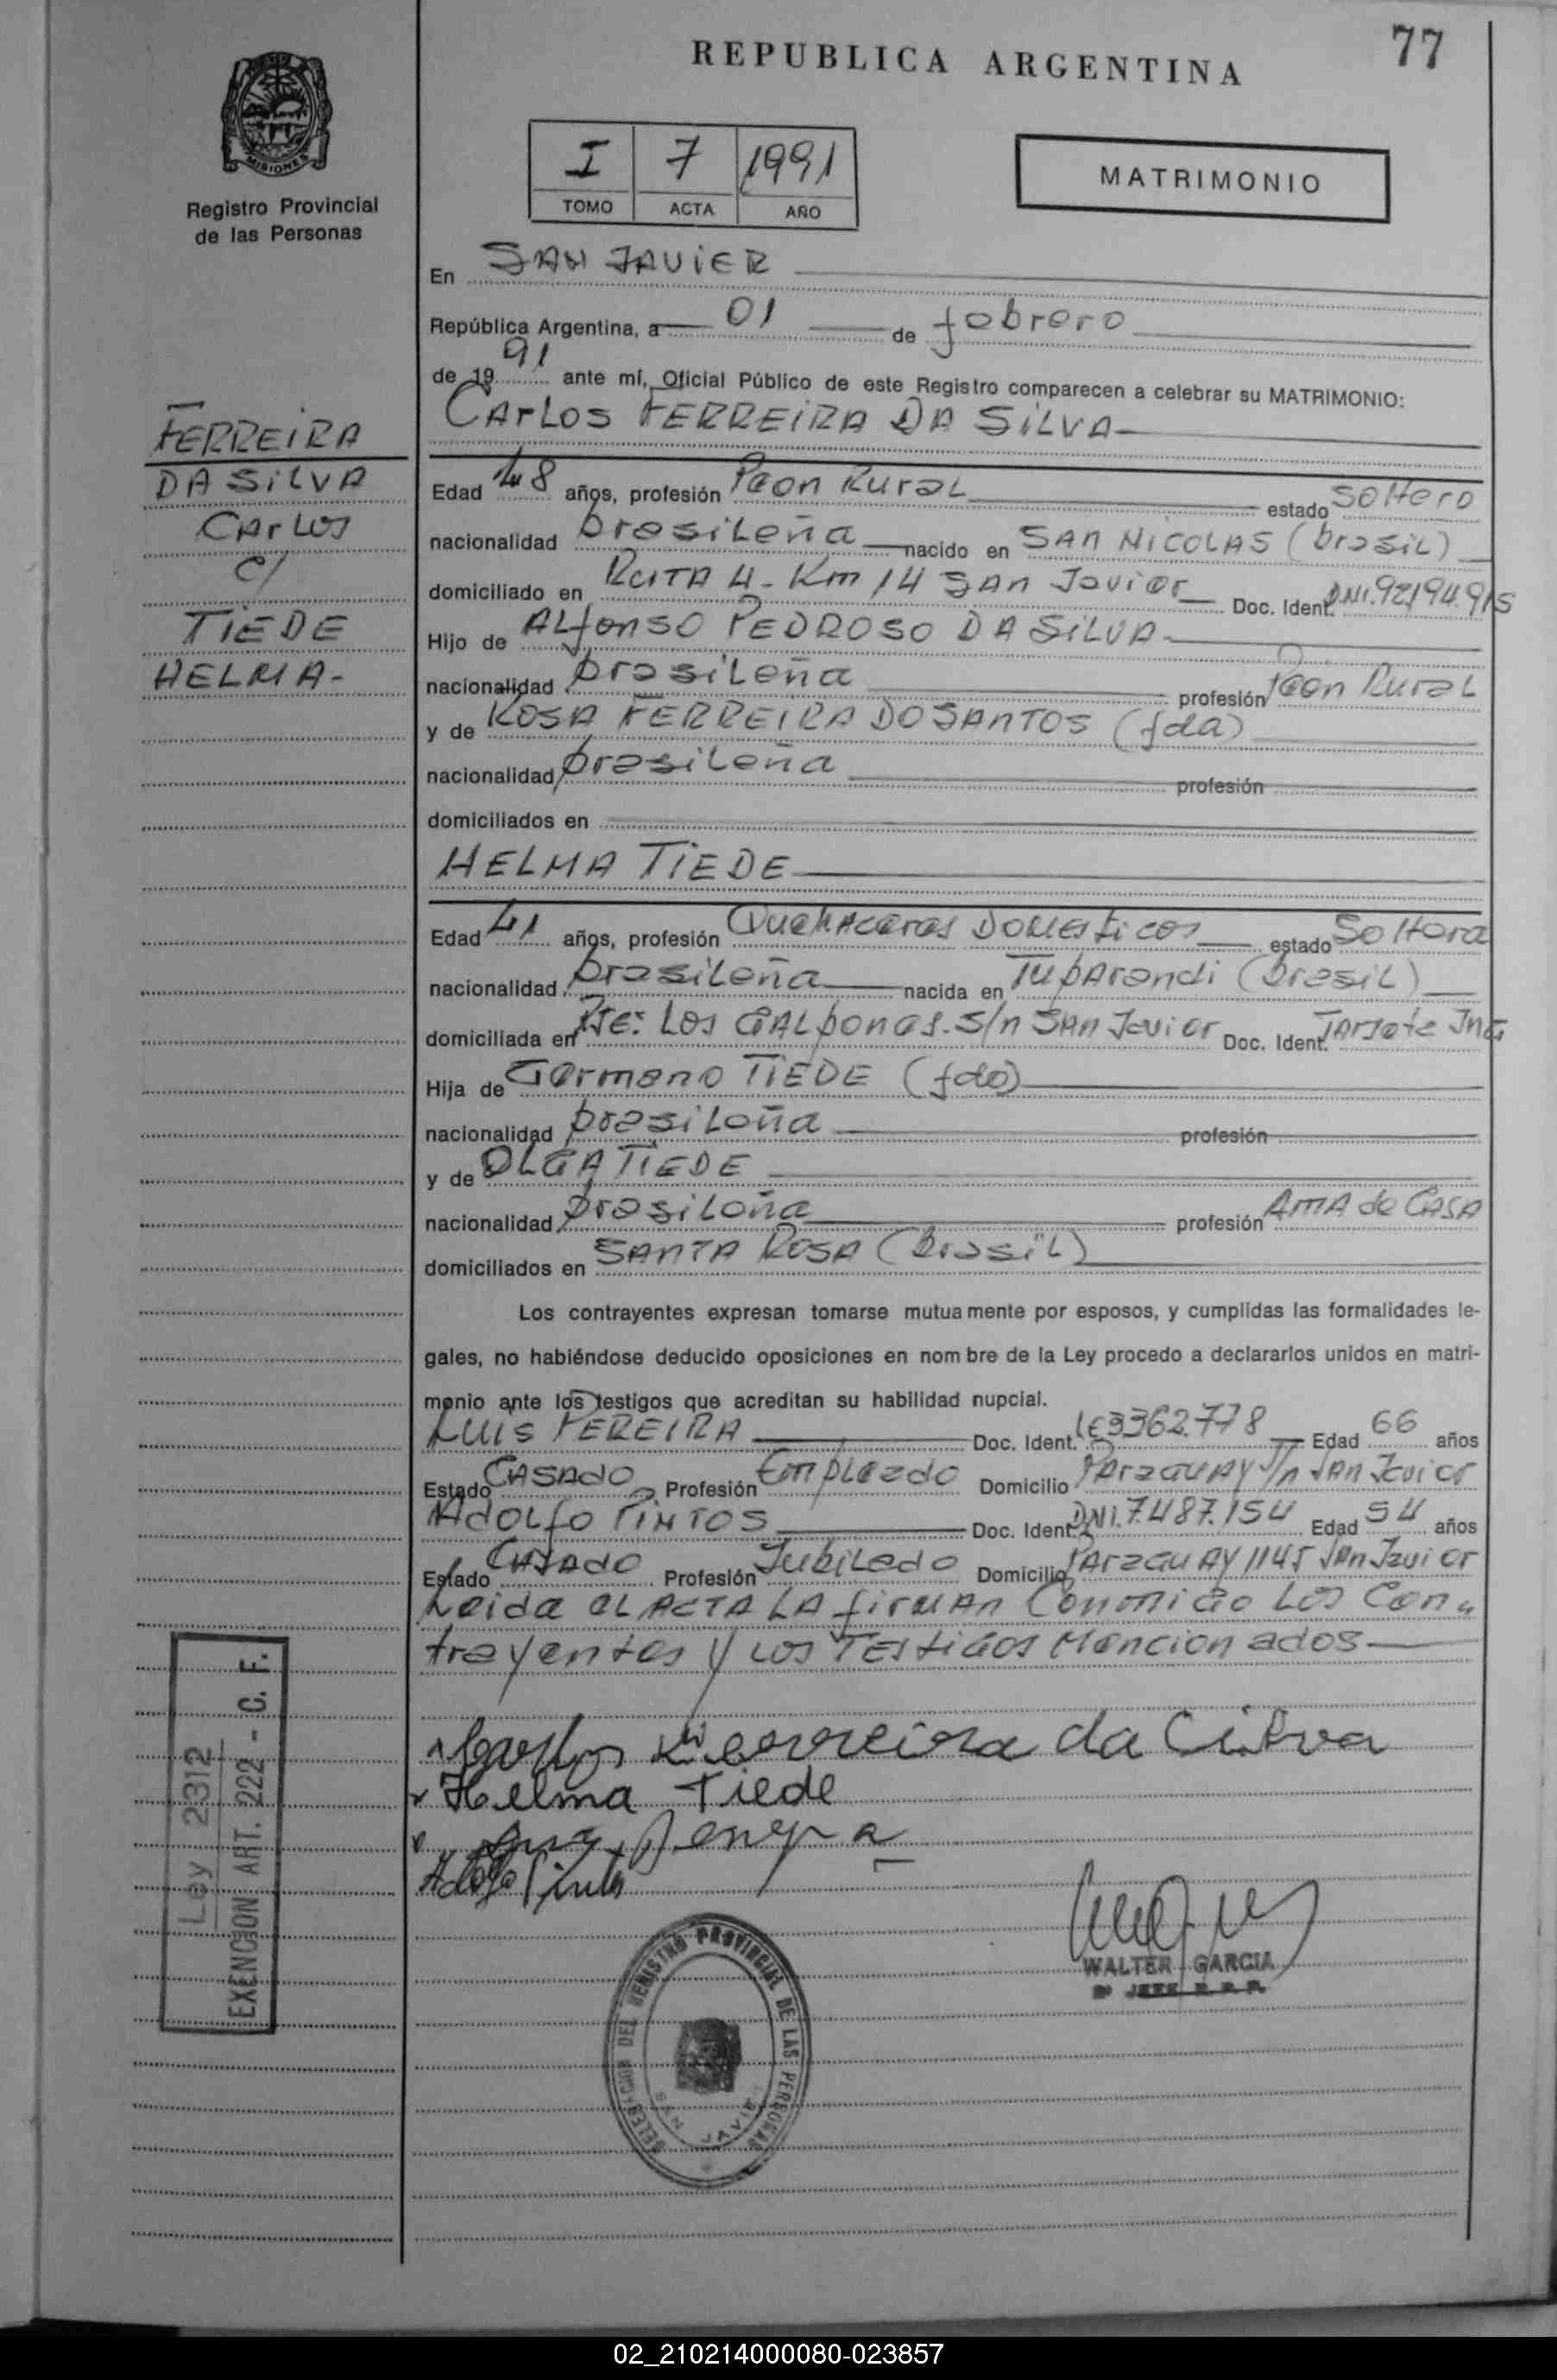 77
REPUBLICA ARGENTINA
MISIONES
Registro Provincial
de las Personas
I 7 1991
TOMO ACTA AÑO
MATRIMONIO
En SAN JAVIER
República Argentina, a 01 de febrero
de 1991 ante mí, Oficial Público de este Registro comparecen a celebrar su MATRIMONIO:
CArLos FERREiRA DA SiLVA
FERREiRA
DA SiLVA
CArLos
c/
TiEDE
HELMA-
Edad 48 años, profesión Peon RuraL estado SoLtero
nacionalidad brasiLeña nacido en SAn NiCOLAS (brasiL)
domiciliado en RutA 4 - Km 14 SAn Javier Doc. Ident. DNI. 92194.915
Hijo de ALfonso PEDROSO DA SiLVA
nacionalidad brasiLeña profesión Peon RuraL
y de ROSA FERREIRA DOSAnTOS (fda)
nacionalidad brasiLeña profesión
domiciliados en
HELMA TiEDE
Edad 41 años, profesión QueHAceres DOMesticos estado SoLtera
nacionalidad brasiLeña nacida en TubArandi (brasiL)
domiciliada en Pje: Los GALpones. S/n SAn Javier Doc. Ident. TArjeta InG
Hija de Germano TiEDE (fdo)
nacionalidad brasiLeña profesión
y de OLGA TiEDE
nacionalidad brasiLeña profesión AmA de CASA
domiciliados en SAnTA ROSA (BrasiL)
Los contrayentes expresan tomarse mutuamente por esposos, y cumplidas las formalidades le-
gales, no habiéndose deducido oposiciones en nombre de la Ley procedo a declararlos unidos en matri-
monio ante los testigos que acreditan su habilidad nupcial.
LUiS PEREiRA Doc. Ident. LE3362.778 Edad 66 años
Estado CASADO Profesión EmpLeado Domicilio PArAGUAY S/n SAn Javier
ADOLfo PiNTOS Doc. Ident. DNI. 7.487.154 Edad 54 años
Estado CASADO Profesión JubiLado Domicilio PArAGUAY 1145 SAn Javier
Leida eL ACTA LA firMAn ConmiGo Los Con-
trayentes y Los TEstiGos Mencionados
Carlos Ferreira da Cilva
Helma Tiede
Adolfo Pintos
Ley 2312
EXENCION ART. 222 - C. F.
WALTER GARCIA
DELEGACION DEL REGISTRO PROVINCIAL DE LAS PERSONAS
SAN JAVIER
02_210214000080-023857